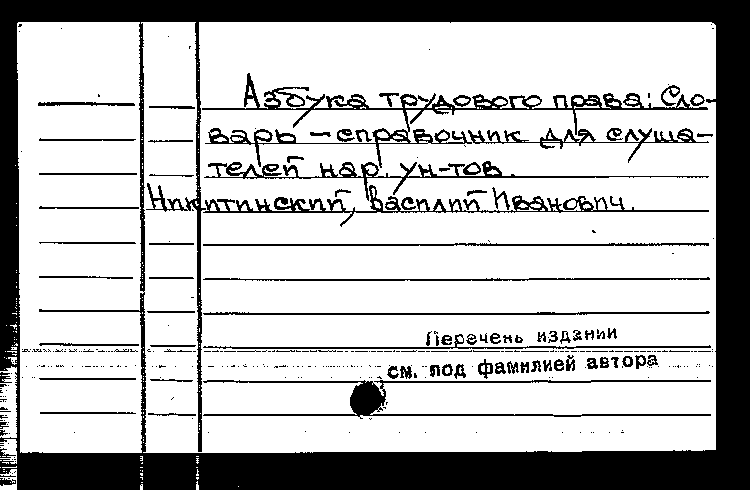 Азбука трудового права: Сло-
варь-справочник для слуша-
телей нар. ун-тов.
Никитинский, Василий Иванович.
Перечень изданий
см. под фамилией автора